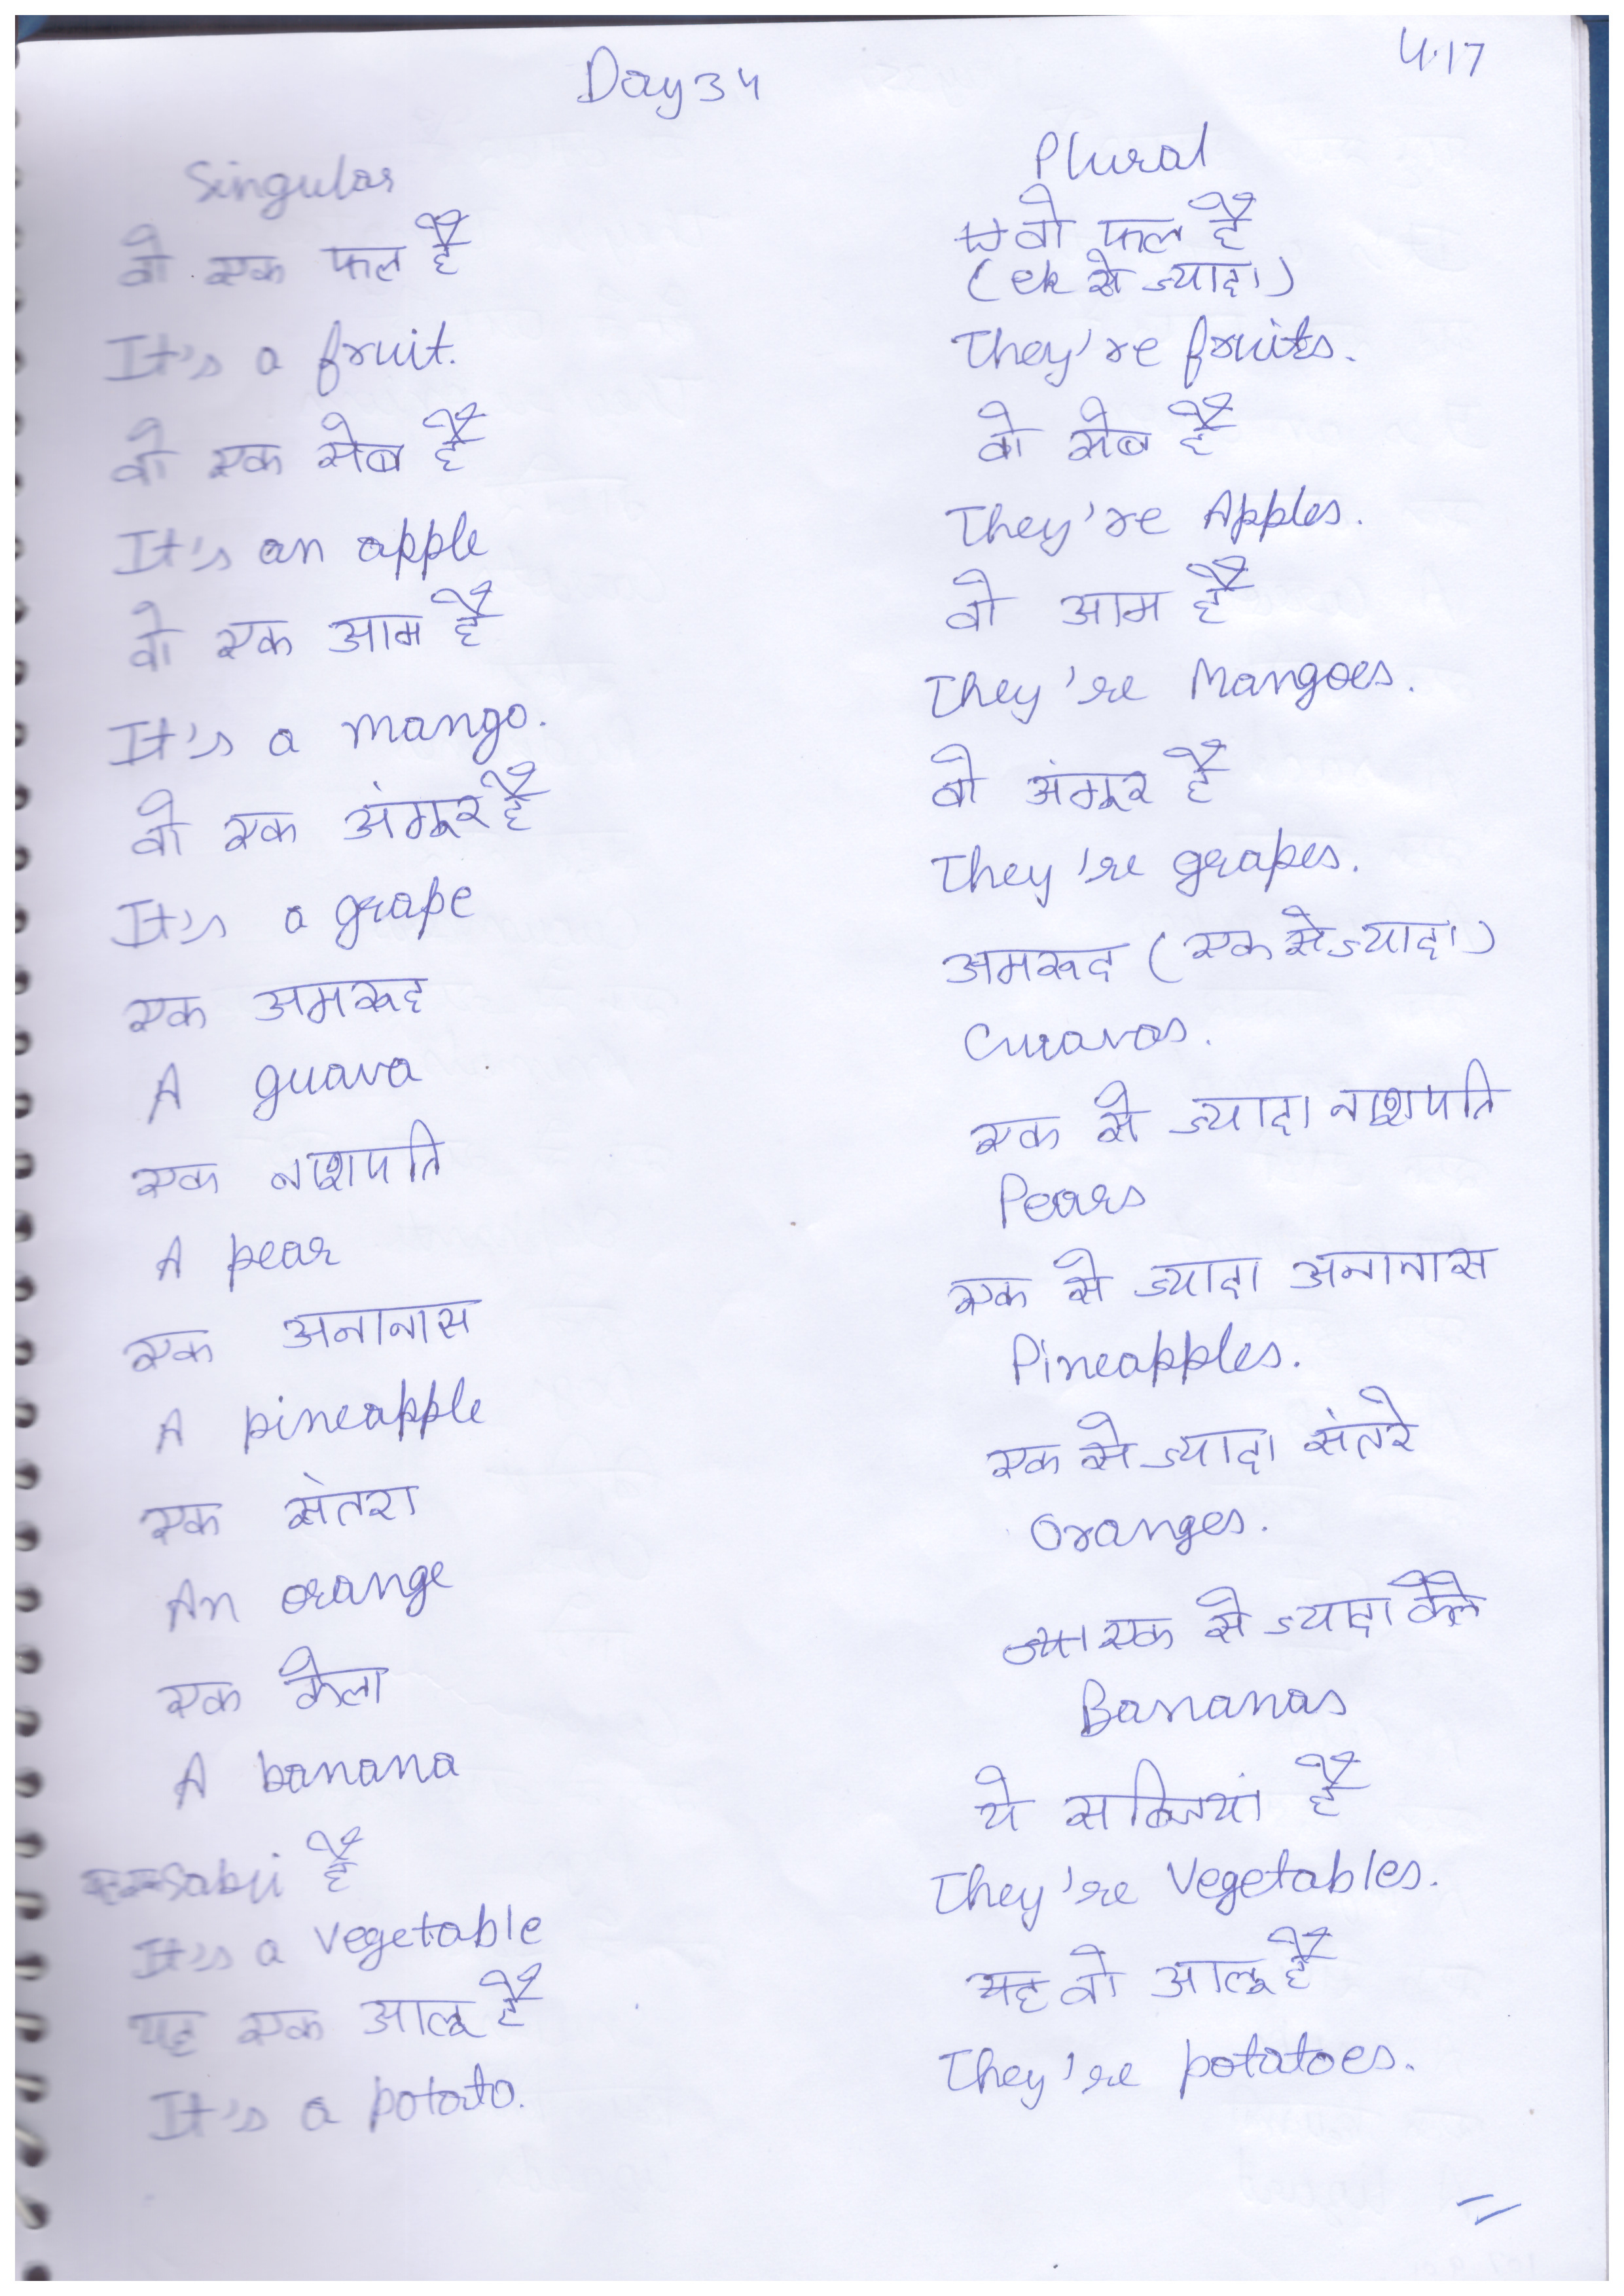 Day 34
4.17
Singular
वो एक फल है
It's a fruit.
वो एक सेब है
It's an apple
वो एक आम है
It's a mango.
वो एक अंगूर है
It's a grape
एक अमरूद
A guava
एक नाशपति
A pear
एक अनानास
A pineapple
एक संतरा
An orange
एक केला
A banana
Sabji है
It's a vegetable
यह एक आलू है
It's a potato.
Plural
वो फल है
(ek से ज्यादा)
They're fruits.
वो सेब है
They're Apples.
वो आम है
They're Mangoes.
वो अंगूर है
They're grapes.
अमरूद (एक से ज्यादा)
Guavas.
एक से ज्यादा नाशपति
Pears
एक से ज्यादा अनानास
Pineapples.
एक से ज्यादा संतरे
Oranges.
एक से ज्यादा केले
Bananas
ये सब्जियां है
They're Vegetables.
वो आलू है
They're potatoes.